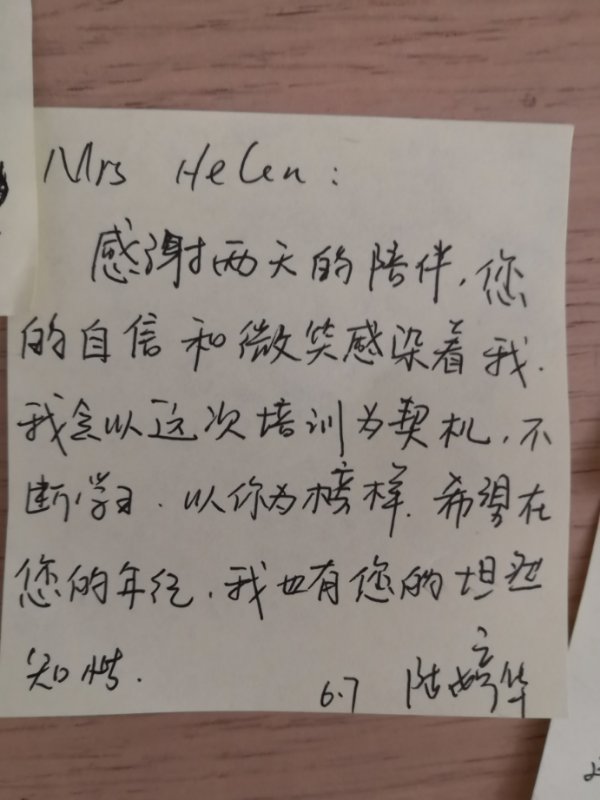 Mrs Helen:
感谢两天的陪伴,您
的自信和微笑感染着我.
我会以这次培训为契机,不
断学习.以你为榜样.希望在
您的年纪,我也有您的坦然
知性.
6.7 陆婷华